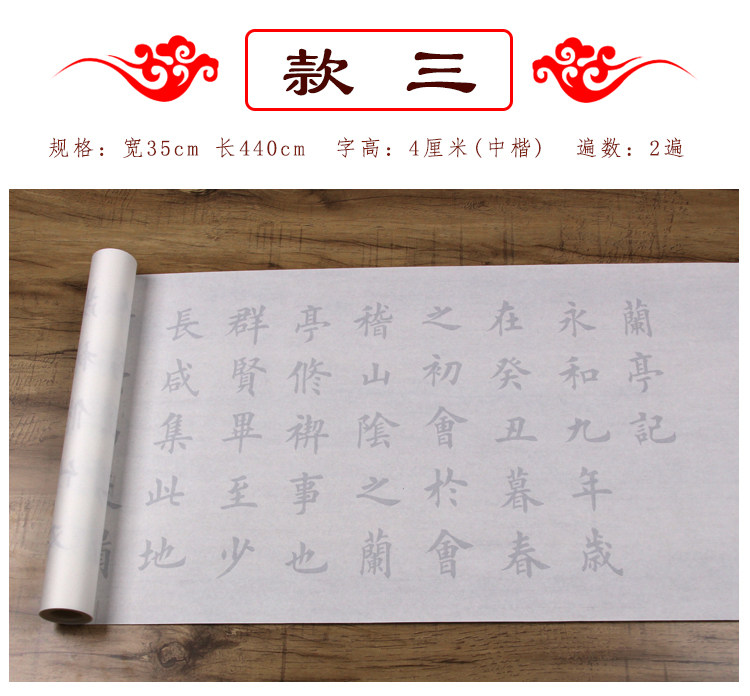 款 三
规格：宽35cm 长440cm 字高：4厘米(中楷) 遍数：2遍
蘭亭記
永和九年歲
在癸丑暮春
之初會於會
稽山陰之蘭
亭修禊事也
群賢畢至少
長咸集此地